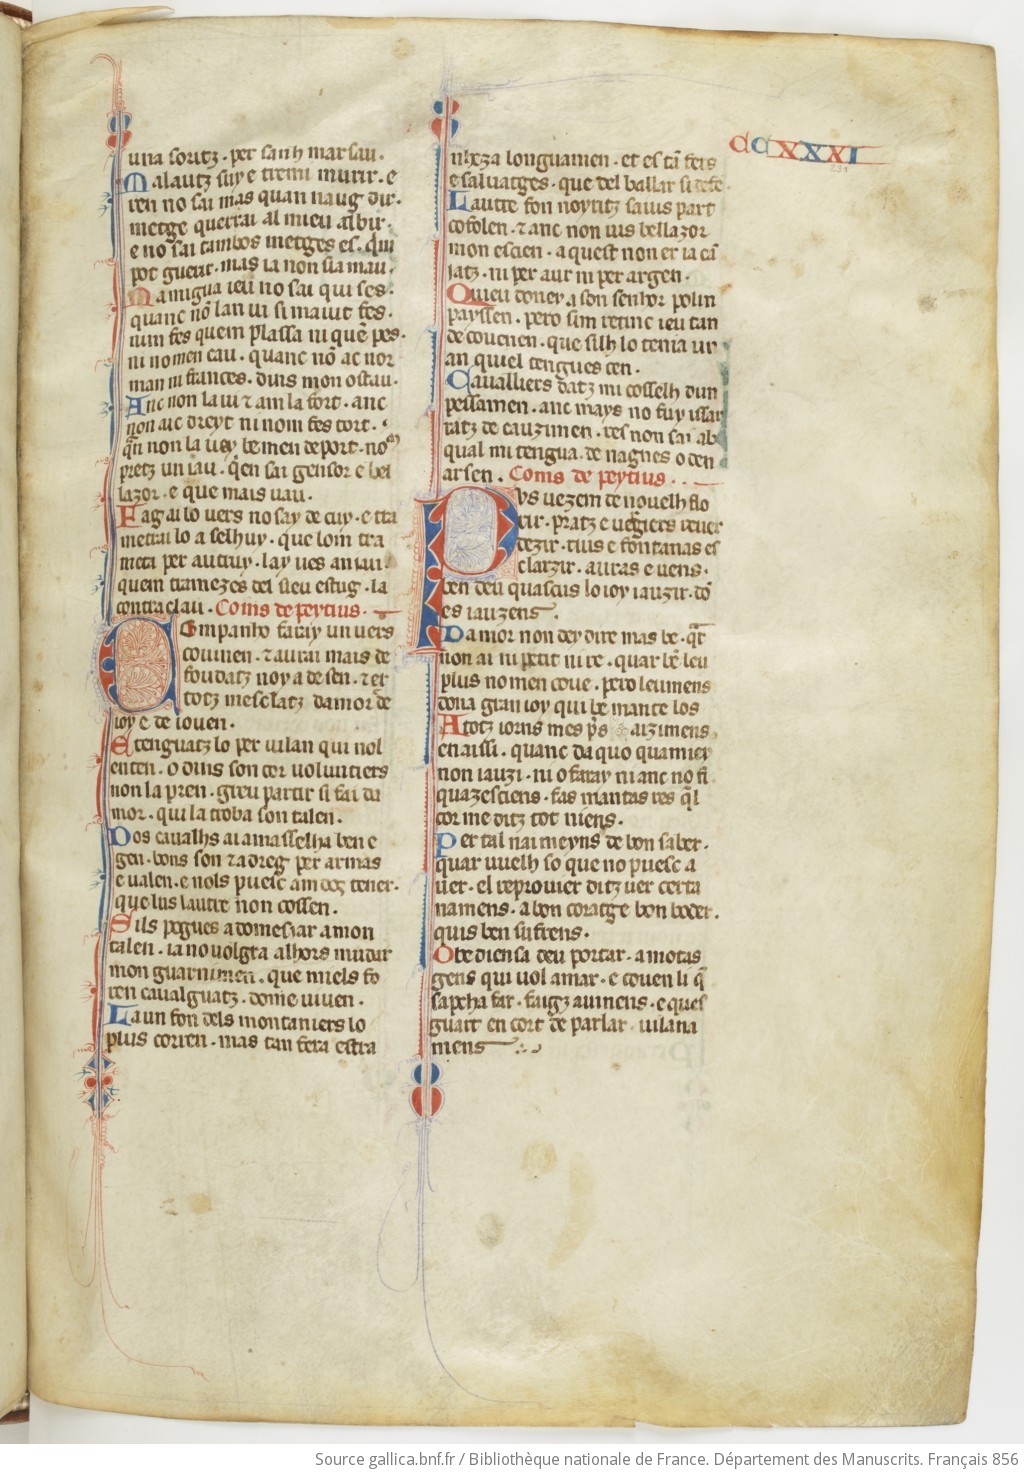 CCXXXI
231
una soritz · per sanh marsau ·
Malautz suy e tremi murir · e
ren no sai mas quan naug dir ·
metge querrai al mieu albir ·
e no sai cambos metges es · qui
pot guerir · mas ia non sia mau ·
Mamigua ieu no sai qui ses ·
quanc nō lan vi si maiut fes ·
num fes quem plassa ni quē pes ·
ni no men cau · quanc nō ac nor
man ni frances · dins mon ostau ·
Anc non la ui ⁊ am la fort · anc
non aic dreyt ni nom fes tort ·
qn̄ non la uey be men deport · no
pretz un iau · qen sai gensor e bel
lazor · e que mais uau ·
Fag ai lo uers no say de cuy · e tra
metrai lo a selhuy · que lom tra
meta per autruy · lay ues aniau ·
quem trameses del sieu estug · la
contraclau · Coms de peytius ·
Companho faray un uers
couinen · ⁊ aurai mais de
foudatz noy a de sen · ⁊ er
totz mesclatz damor de
ioy e de iouen ·
E tenguatz lo per uilan qui nol
enten · o dins son cor voluntiers
non la pren · greu partir si fai da
mor · qui la troba son talen ·
Dos cauals ai amasselha ben e
gen · bons son ⁊ adreg per armas
e ualen · e nols puesc amdos tener ·
que lus lautre non cossen ·
Sils pogues adomesiar a mon
talen · ia no uolgra alhors mudar
mon guarnimen · que miels fo
ren caualguatz · dome viuen ·
Laun fon dels montaniers lo
plus corren · mas tan fera estra
nheza longuamen · et es tā fers
e saluatges · que del bailar si defe ·
Lautre fon noyritz saius part
cofolen · ⁊ anc non uis bellazor
mon escien · aquest non er ia cā
iatz · ni per aur ni per argen ·
Quieu doney a son senhor polin
payssen · pero sim retinc ieu tan
de couenen · que silh lo tenia un
an quiel tengues cen ·
Caualliers datz mi cosselh dun
pessamen · anc mays no fuy issar
ratz de cauzimen · res non sai ab
qual mi tengua · de nagnes o den
arsen · Coms de peytius ·
Pus uezem de nouelh flo
rir · pratz e uergiers reuer
dezir · rius e fontanas es
clarzir · auras e uens ·
ben deu quascus lo ioy iauzir · dō
es iauzens ·
Damor non dey dire mas be · qr̄
non ai ni petit ni re · quar bē leu
plus no men coue · pero leumens
dona gran ioy qui be mante los
A totz iorns mes p̄s aizimens
enaissi · quanc da quo quamiey
non iauzi · ni o faray ni anc no fi
quazesciens · fas mantas res ql
cor me ditz tot niens ·
Per tal nai meyns de bon saber ·
quar vuelh so que no puesc a
uer · el reprouier ditz uer certa
namens · a bon coratge bon poder ·
quis ben sufrens ·
Obediensa deu portar · a motas
gens qui uol amar · e couen li q̄
sapcha far · faigz auinens · e ques
guart en cort de parlar · uilana
mens
Source gallica.bnf.fr / Bibliothèque nationale de France. Département des Manuscrits. Français 856